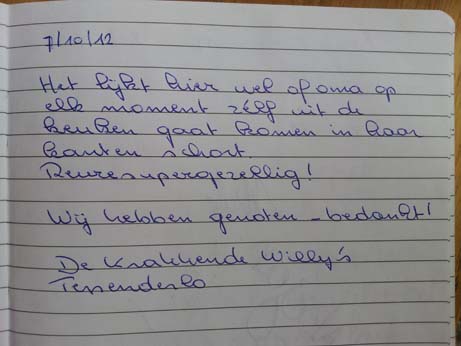 7/10/12
Het lijkt hier wel of oma op
elk moment zélf uit de
keuken gaat komen in haar
kanten schort.
Reuzesupergezellig!
Wij hebben genoten - bedankt!
De Krakkende Willy's
Tessenderlo